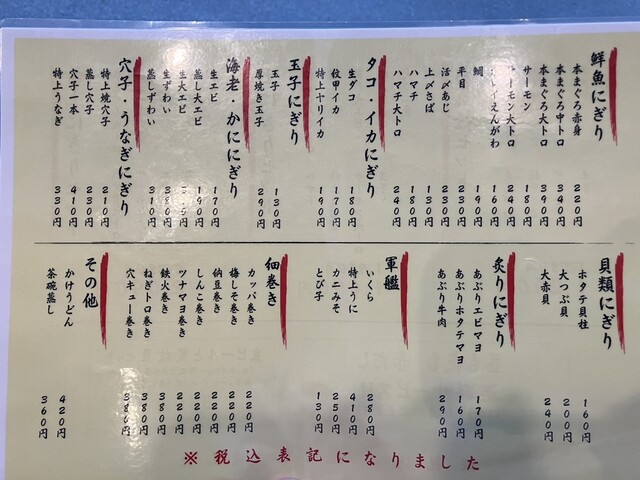 鮮魚にぎり
本まぐろ赤身 220円
本まぐろ中トロ 340円
本まぐろ大トロ 390円
サーモン 180円
サーモン大トロ 240円
えんがわ 160円
鯛 190円
平目 230円
活〆あじ 230円
上〆さば 130円
ハマチ 180円
ハマチ大トロ 240円
タコ・イカにぎり
生ダコ 180円
紋甲イカ 170円
特上ヤリイカ 190円
玉子にぎり
玉子 130円
厚焼き玉子 290円
海老・かににぎり
生エビ 170円
蒸し大エビ 190円
生大エビ
生ずわい 380円
蒸しずわい 310円
穴子・うなぎにぎり
特上焼穴子 210円
蒸し穴子 230円
穴子一本 410円
特上うなぎ 330円
貝類にぎり
ホタテ貝柱 160円
大つぶ貝 200円
大赤貝 240円
炙りにぎり
あぶりエビマヨ 170円
あぶりホタテマヨ 160円
あぶり牛肉 290円
軍艦
いくら 280円
特上うに 410円
カニみそ 250円
とび子 130円
細巻き
カッパ巻き 220円
梅しそ巻き 220円
納豆巻き 220円
しんこ巻き 220円
ツナマヨ巻き 220円
鉄火巻き 380円
ねぎトロ巻き 380円
穴キュー巻き 380円
その他
かけうどん 420円
茶碗蒸し 360円
※税込表記になりました